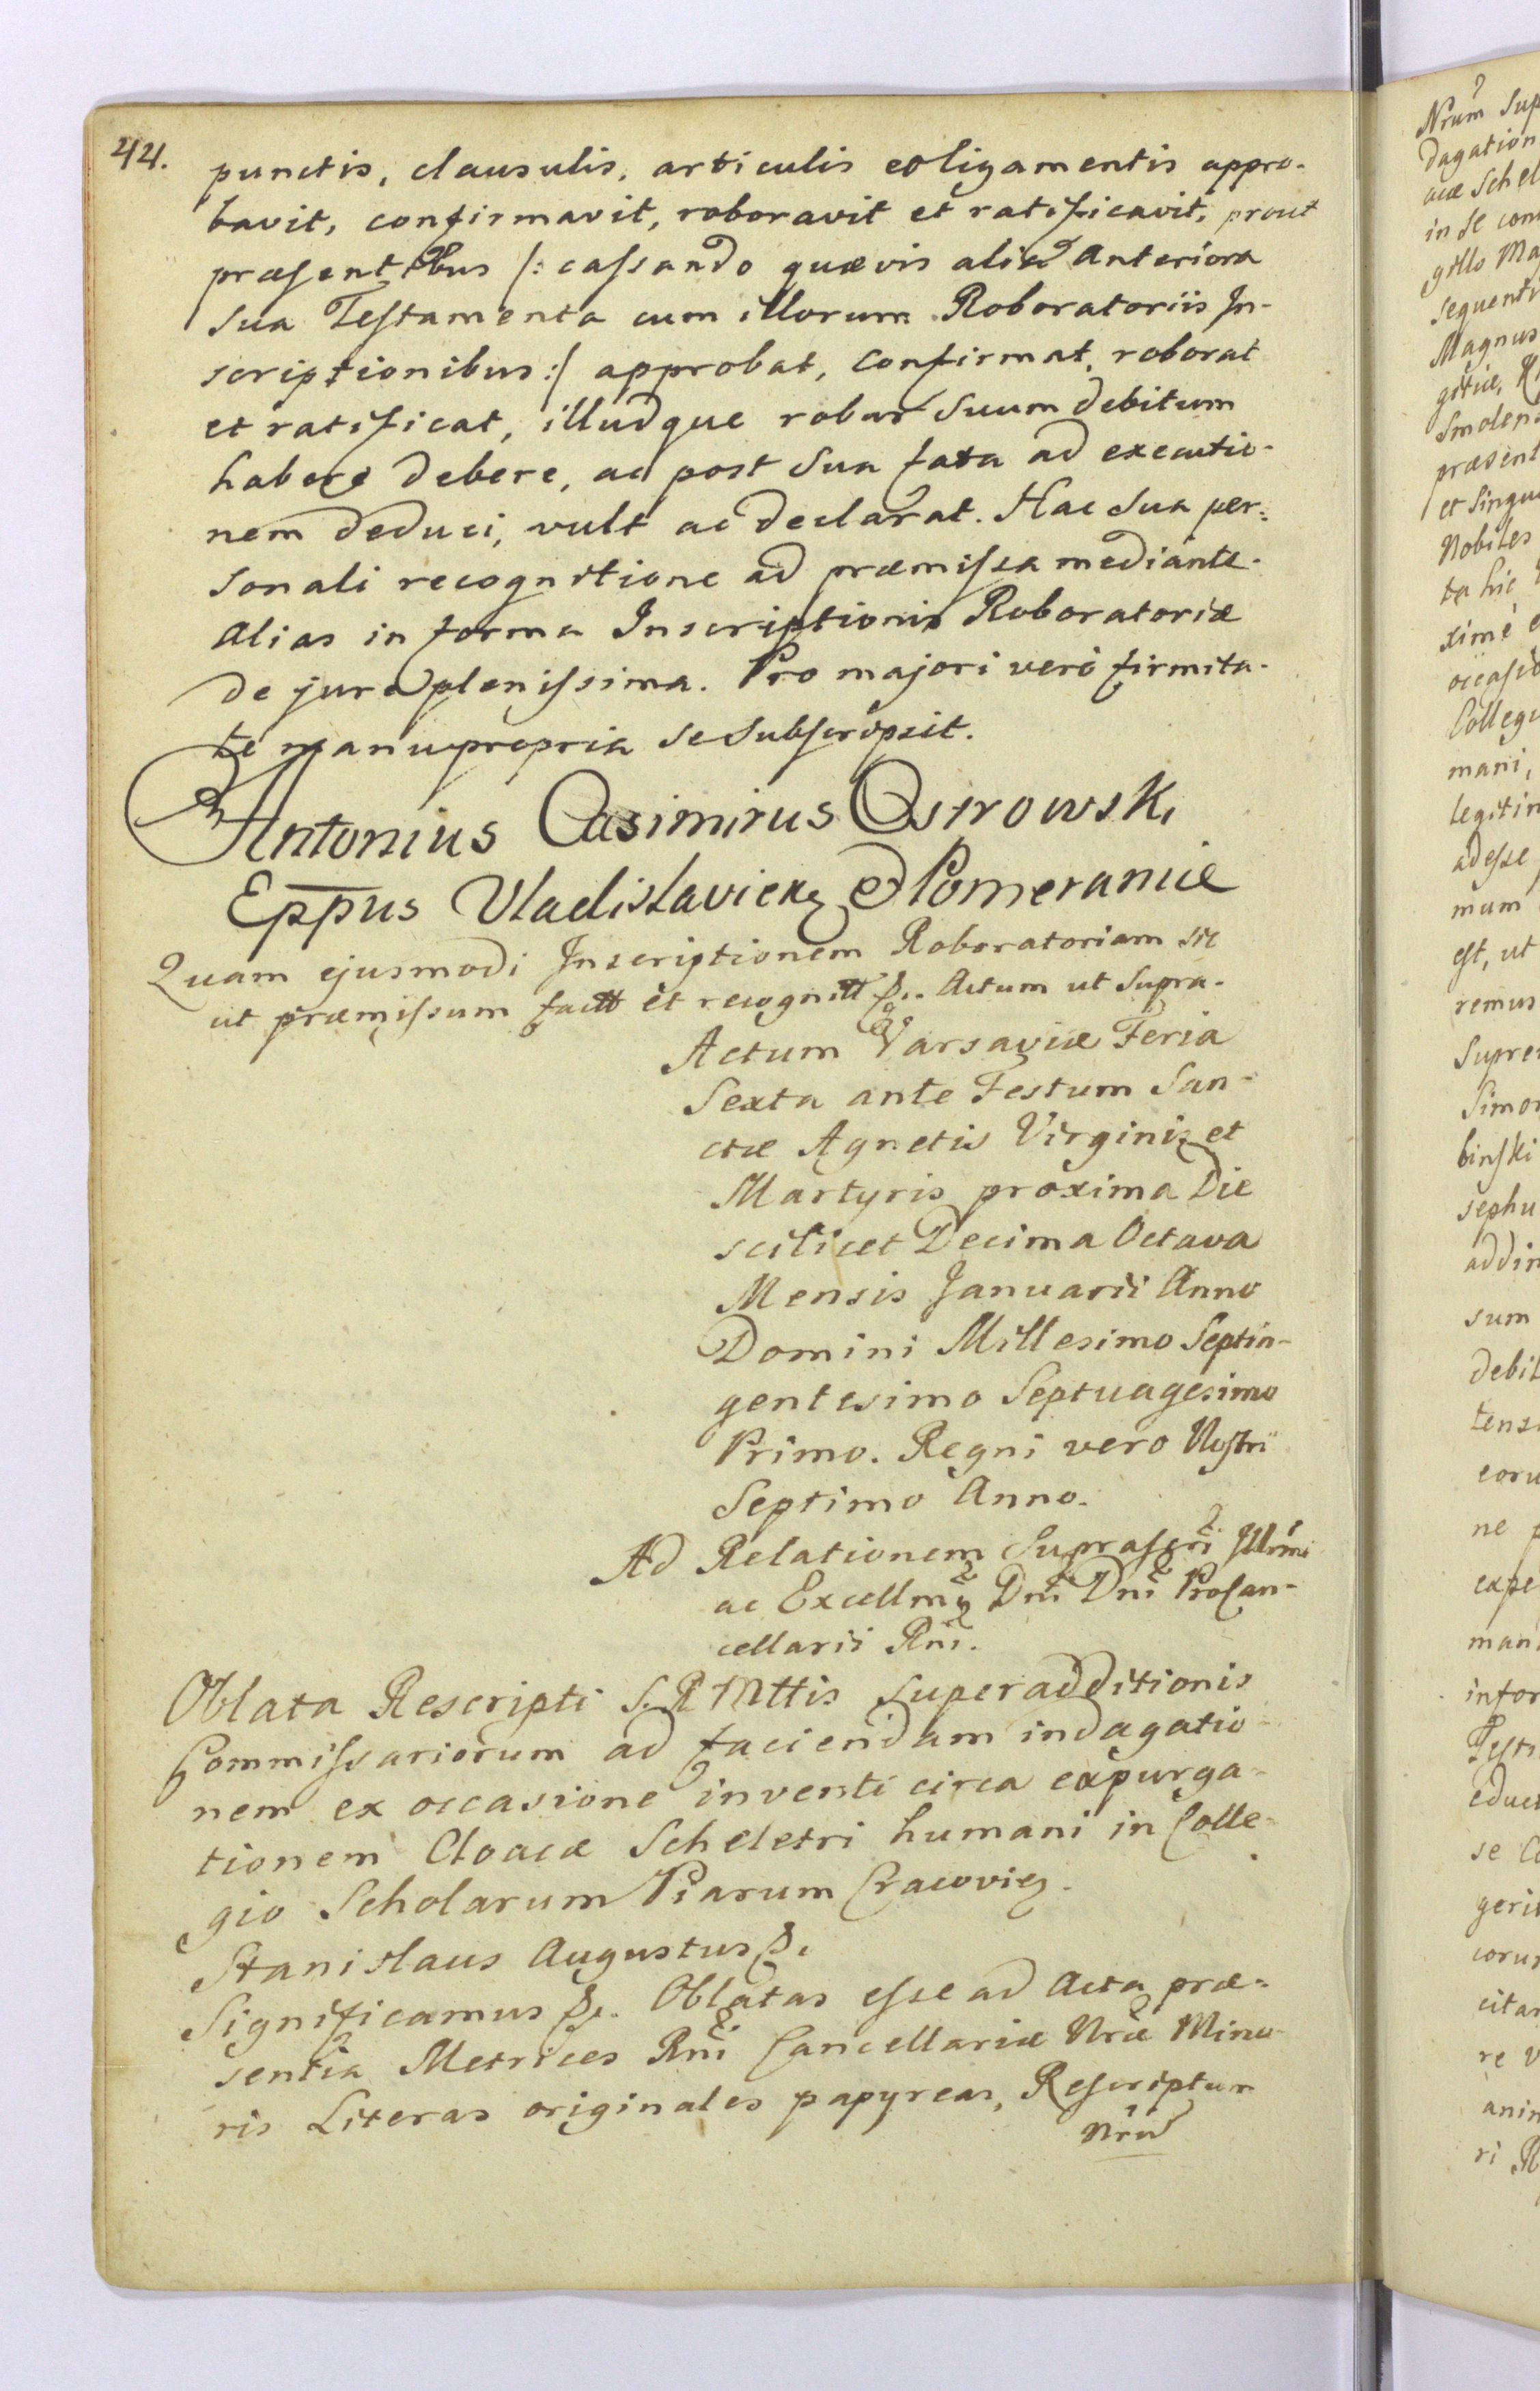 44.
punctis, clausulis, articulis et ligamentis appro-
bavit, confirmavit, roboravit et ratificavit, prout
præsentibus /: cassando quævis alia anteriora
sua Testamenta cum illorum Roboratoriis In-
scriptionibus :/ approbat, confirmat, roborat
et ratificat, illudque robur suum debitum
habere debere, ac post sua fata ad executio-
nem deduci, vult ac declarat. Hac sua per-
sonali recognitione ad præmissa mediante.
Alias in forma Inscriptionis Roboratoriæ
de jure plenissima. Pro majori verò firmita-
te manu propria se subscripsit.
Antonius Casimirus Ostrowski
Eppus Vladislavien et Pomeraniæ
Quam ejusmodi Inscriptionem Roboratoriam sic
ut præmissum factt et recognitt &. Actum ut supra.
Actum Varsaviæ Feria
Sexta ante Festum San-
ctæ Agnetis Virginis et
Martyris proxima Die
scilicet Decima Octava
Mensis Januarii Anno
Domini Millesimo Septin-
gentesimo Septuagesimo
Primo. Regni vero Nostri
Septimo Anno.
Ad Relationem Suprascri Illrmi
ac Excellmi Dni Dni ProCan-
cellarii Rni.
Oblata Rescripti S. R Mttis superadditionis
Commissariorum ad faciendam indagatio-
nem ex occasione inventi circa expurga-
tionem Cloacæ Scheletri humani in Colle-
gio Scholarum Piarum Cracovien.
Stanislaus Augustus &.
Significamus &. Oblatas esse ad Acta præ-
sentia Metrices Rni Cancellariæ Nræ Mino-
ris Literas originales papyreas, Rescriptum
Nrum
Nrum sup
dagation
acæ Schel
in se con
gillo Ma
sequenti
Magnus
præsent
et singu
Nobiles
ta hic
ximè
occasio
Collegi
mani,
legitim
adesse
mum
est, ut
remus
Supre
Simon
binski
sephu
addin
sum
debit
tens
coru
ne p
expe
man
infor
Testi
educ
se C
geri
corum
citan
re v
anim
ri R